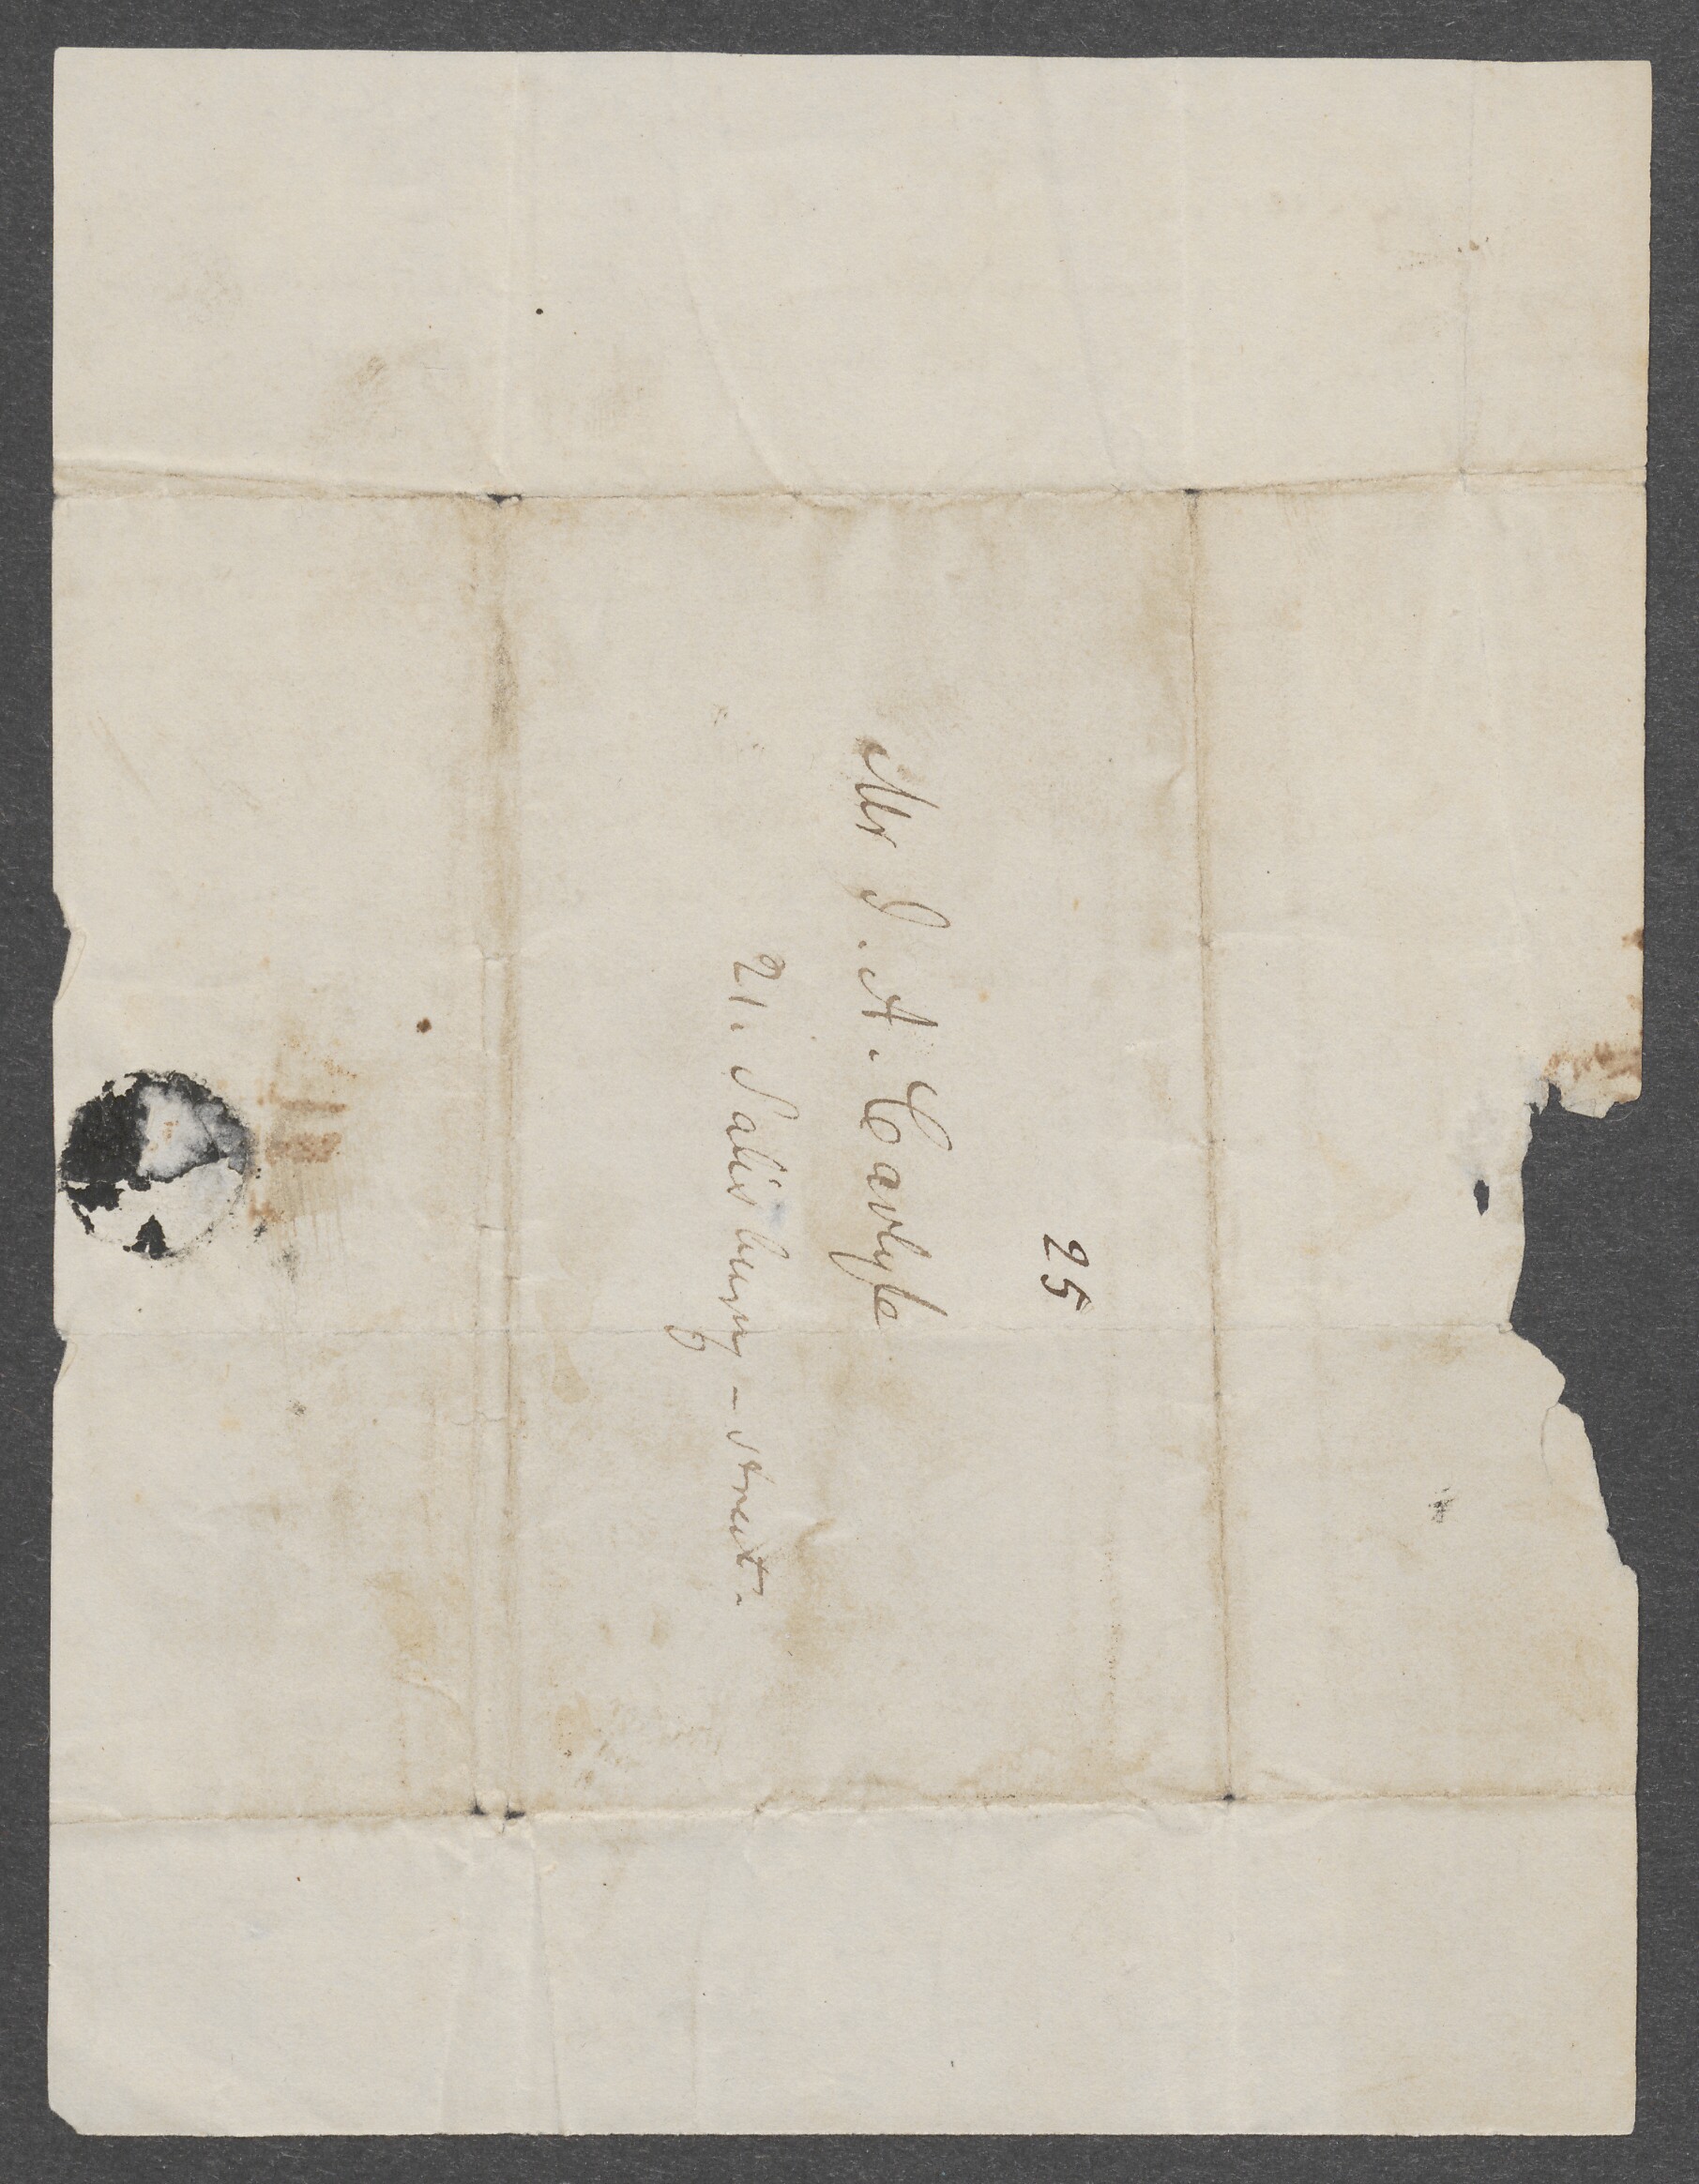 25
Mr J. A. Carlyle
21. Salisbury-street.